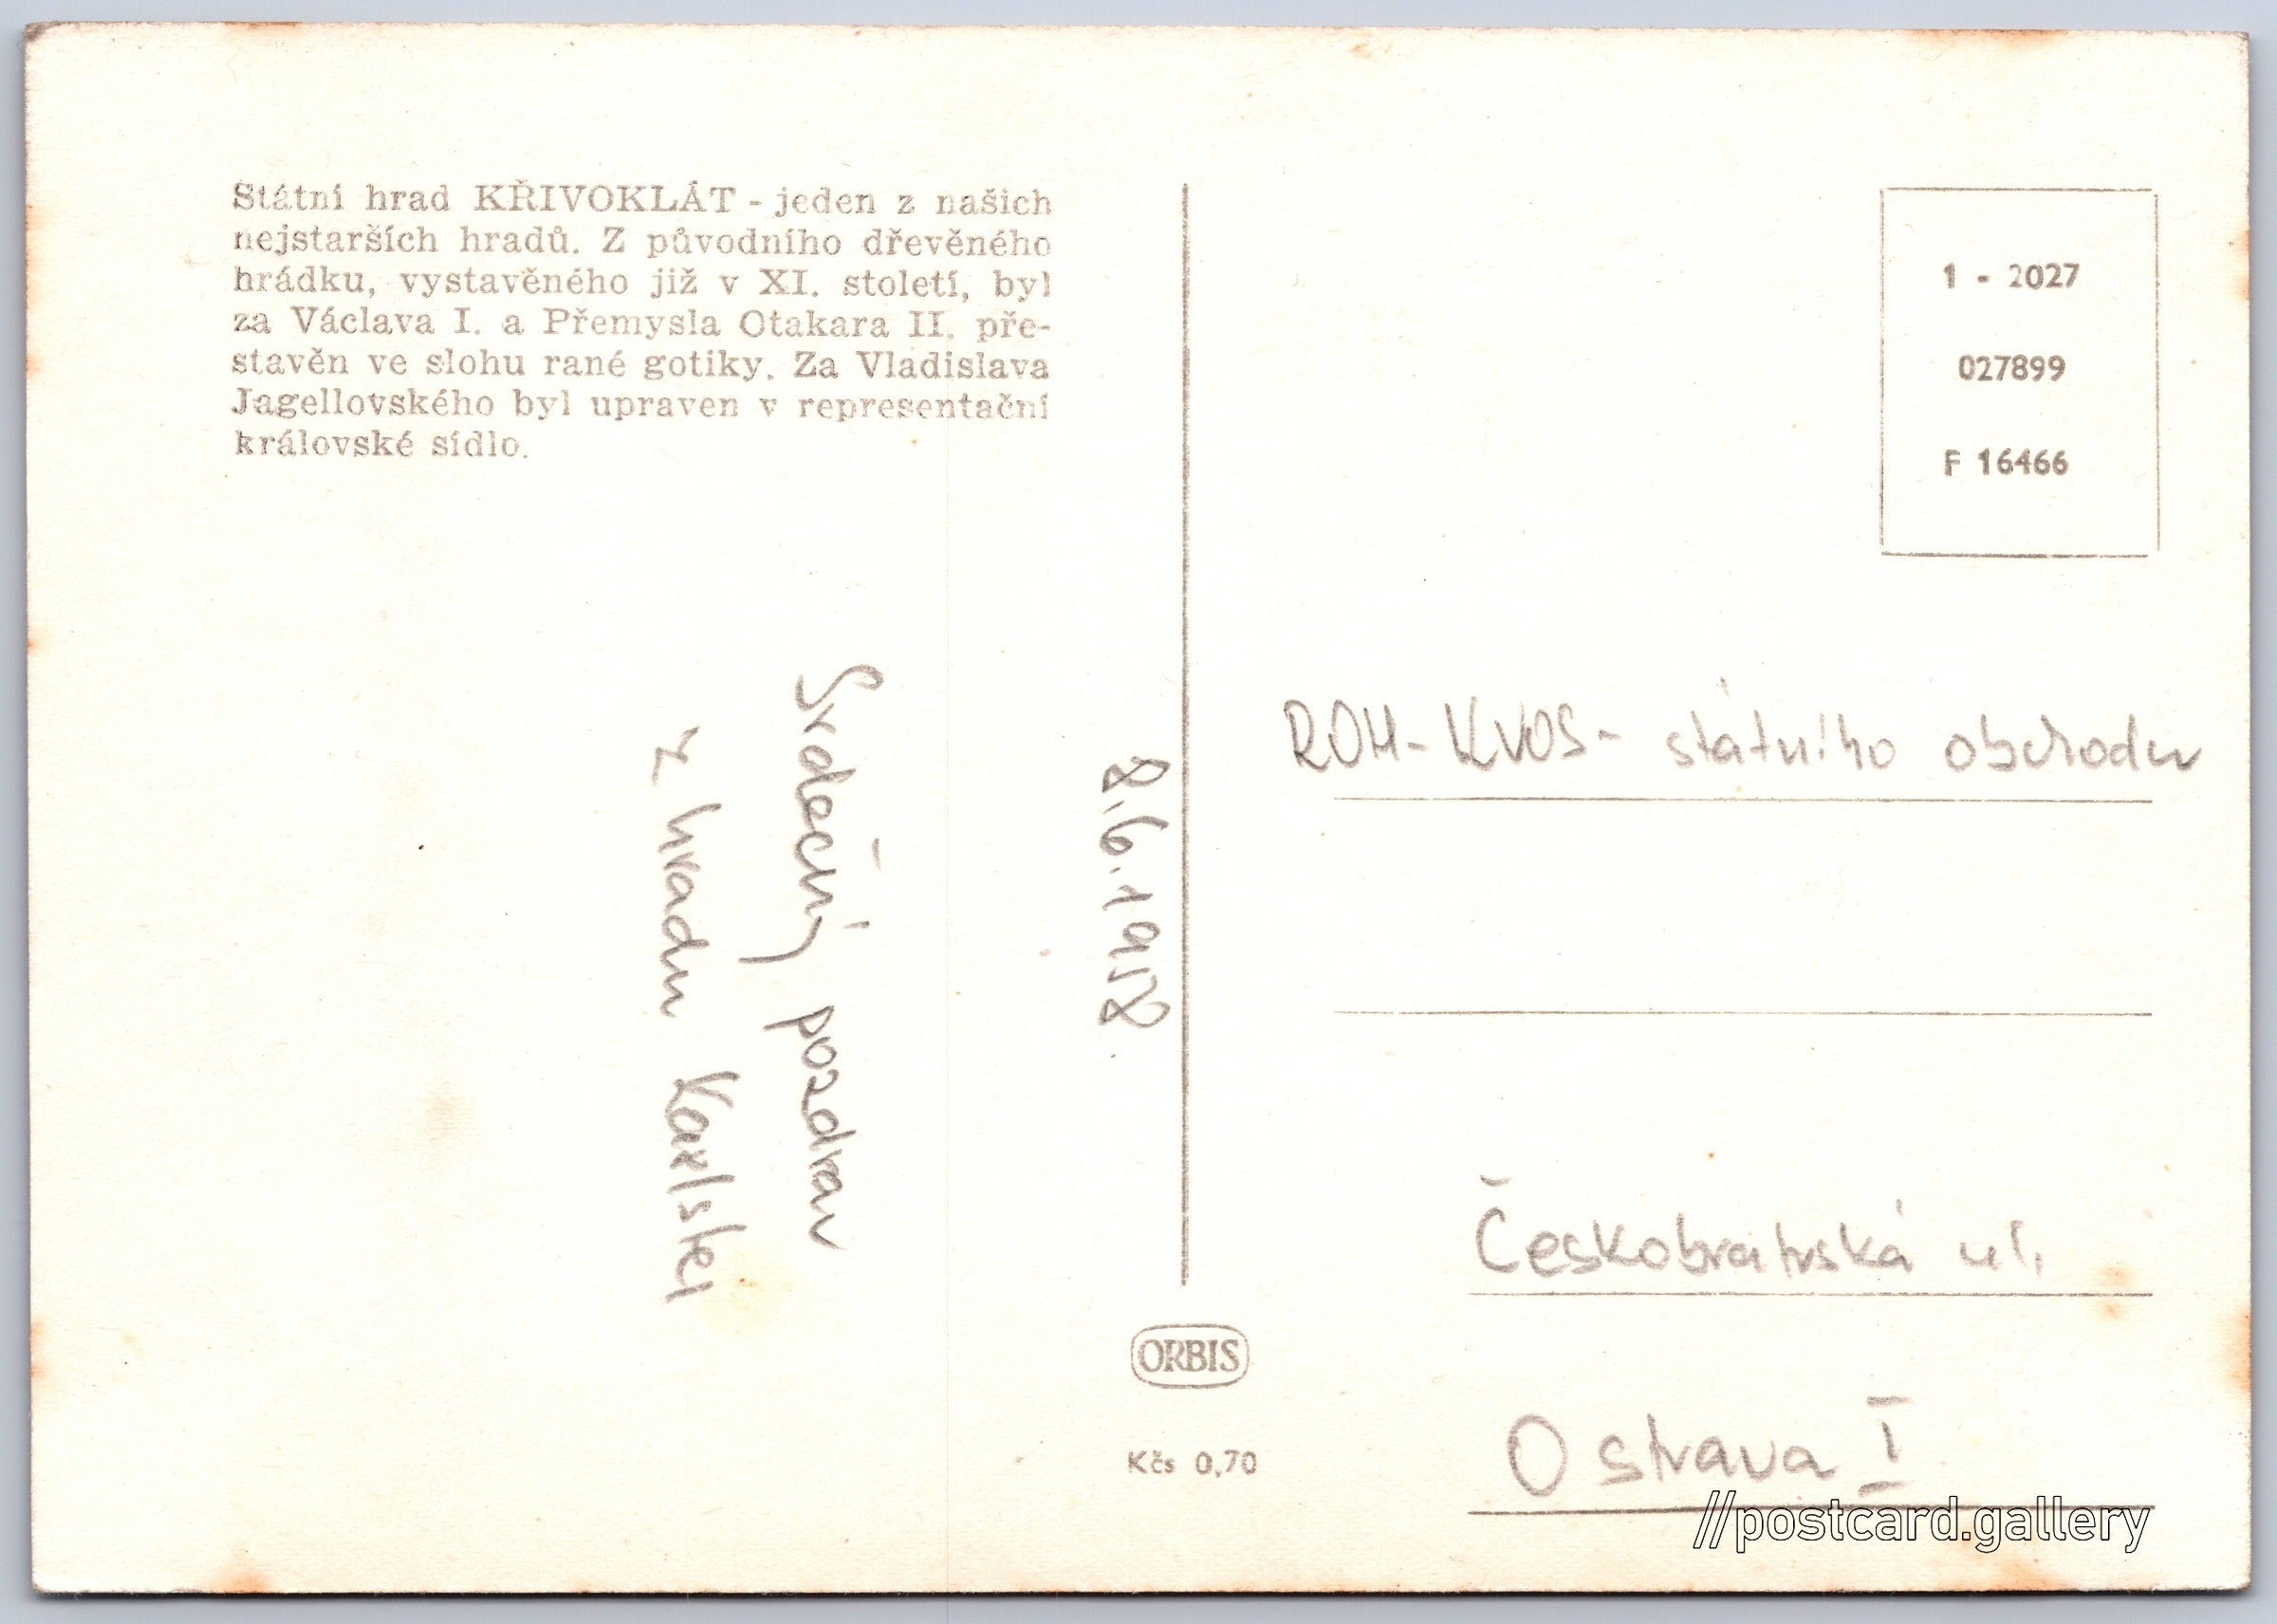 Státní hrad KŘIVOKLÁT - jeden z našich
nejstarších hradů. Z původního dřevěného
hrádku, vystavěného již v XI. století, byl
za Václava I. a Přemysla Otakara II. pře-
stavěn ve slohu rané gotiky. Za Vladislava
Jagellovského byl upraven v representační
královské sídlo.
8.6.1958.
Srdečný pozdrav
z hradu Karlštej
ORBIS
Kčs 0,70
1 - 2027
027899
F 16466
ROH-KVOS- státního obchodu
Českobratrská ul.
Ostrava I
//postcard.gallery